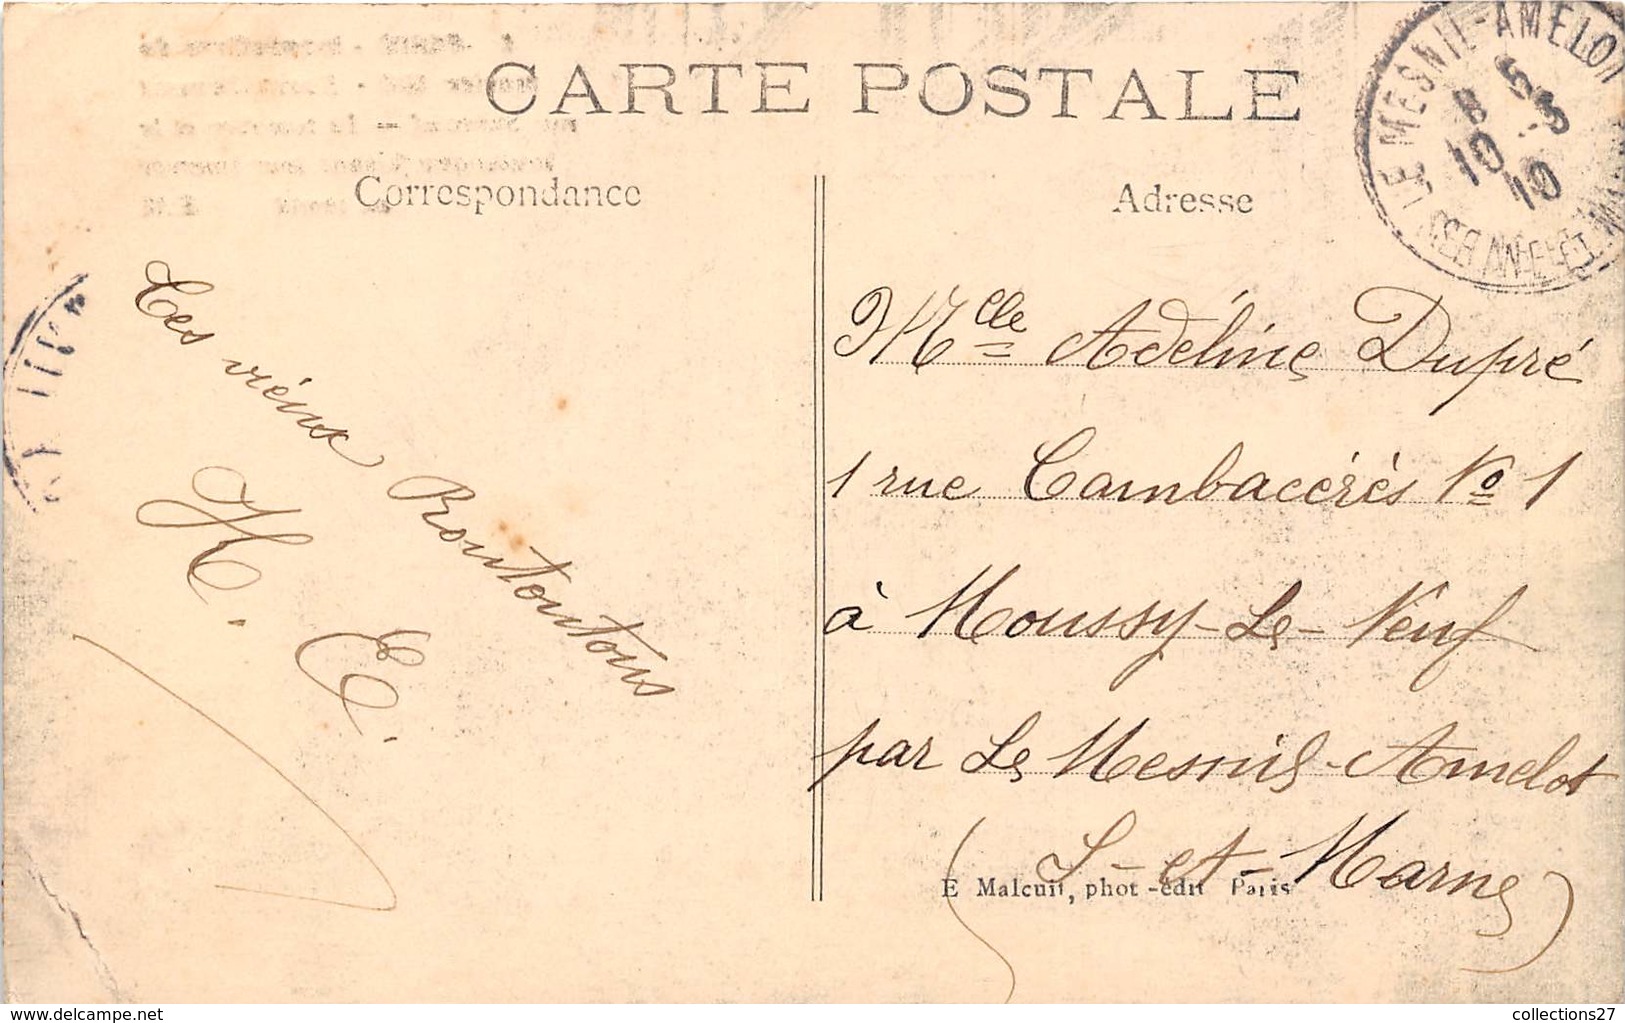 CARTE POSTALE
Correspondance
Adresse
LE MESNIL-AMELOT
8
5-5
10
10
SEINE-ET-MARNE
Tes vieux Rontontons
H. E.
Mlle Adéline Dupré
1 rue Cambacérès No 1
à Moussy-Le-Neuf
par Le Mesnil-Amelot
(S-et-Marne)
E Malcuit, phot-édit Paris
collections27